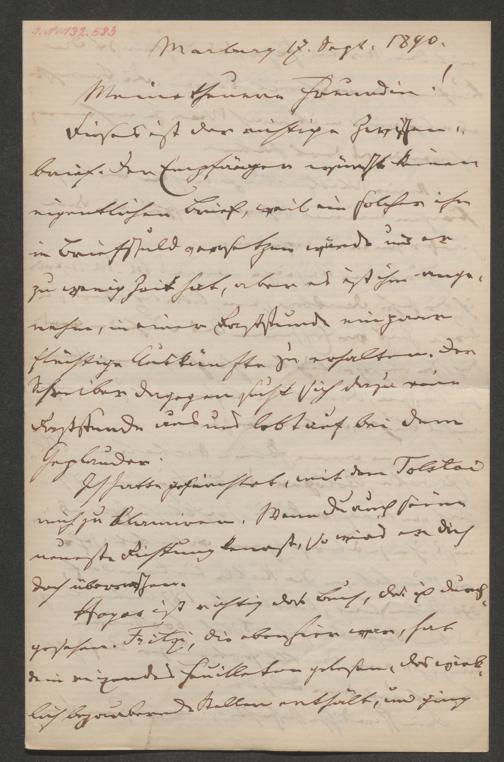 I.N. 132.583
Marburg 17. Sept. 1890.
Meine theuere Freundin!
Dieses ist der richtige
brief. Der Empfänger wünscht keinen
eigentlichen Brief, weil ein solcher ihn
in Briefschuld versetzen würde und er
zu wenig Zeit hat, aber es ist ihm ange-
nehm, in einer Raststunde ein paar
flüchtige Auskünfte zu erhalten. Der
Schreiber dagegen sucht sich dazu eine
Raststunde aus und lebt auf bei dem
Geplauder.
Ich hatte gefürchtet, mit dem Tolstoi
mich zu blamiren. Wenn Du auch seine
neueste Richtung kennst, so wird er Dich
doch überraschen.
ist richtig das Buch, das ich durch-
gesehen. Fritzi, die eben hier war, hat
Feuilleton gelesen, das wirk-
lich bezaubernde Stellen enthält, und ging